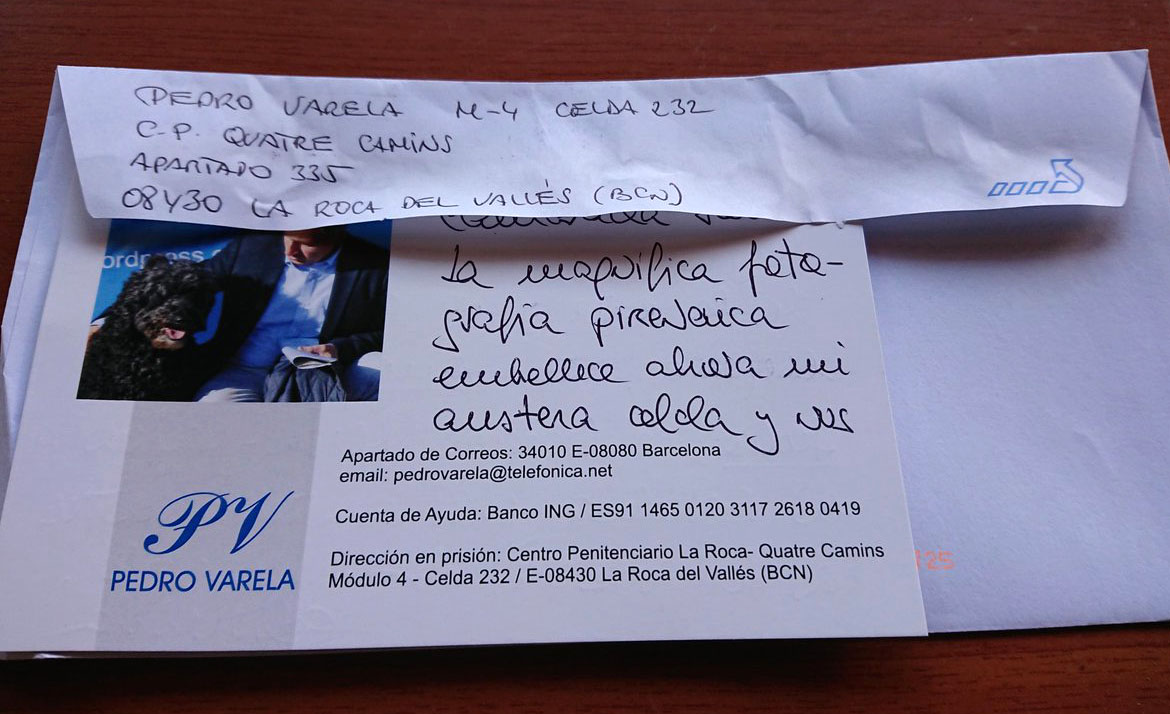 PEDRO VARELA M-4 CELDA 232
C.P. QUATRE CAMINS
APARTADO 335
08430 LA ROCA DEL VALLÉS (BCN)
ordpress.
la magnífica foto-
grafía pirenaica
embellece ahora mi
austera celda y nos
Apartado de Correos: 34010 E-08080 Barcelona
email: pedrovarela@telefonica.net
Cuenta de Ayuda: Banco ING / ES91 1465 0120 3117 2618 0419
Dirección en prisión: Centro Penitenciario La Roca- Quatre Camins
Módulo 4 - Celda 232 / E-08430 La Roca del Vallés (BCN)
PV
PEDRO VARELA
25